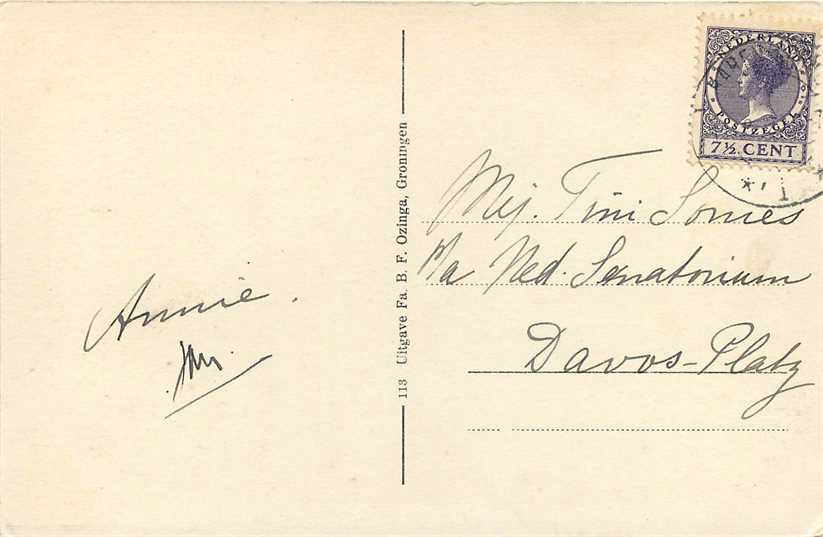 NEDERLAND
POSTZEGEL
7½ CENT
Mej. Tini Somes
p/a Ned. Sanatorium
Davos-Platz
Annie.
113 Uitgave Fa. B. F. Ozinga, Groningen